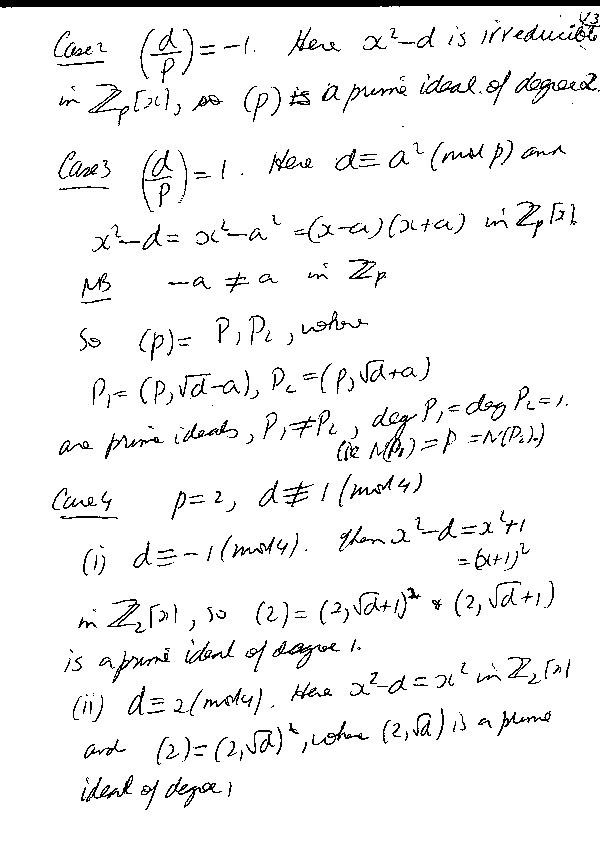 43
Case 2 (d/p) = -1. Here x²-d is irreducible
in ℤ_p[x], so (p) is a prime ideal of degree 2.
Case 3 (d/p) = 1. Here d ≡ a² (mod p) and
x²-d = x²-a² = (x-a)(x+a) in ℤ_p[x].
NB -a ≠ a in ℤ_p
So (p) = P₁P₂, where
P₁ = (p, √d-a), P₂ = (p, √d+a)
are prime ideals, P₁ ≠ P₂, deg P₁ = deg P₂ = 1.
(ie N(P₁) = p = N(P₂).)
Case 4 p = 2, d ≢ 1 (mod 4)
(i) d ≡ -1 (mod 4). Then x²-d = x²+1
= (x+1)²
in ℤ₂[x], so (2) = (2, √d+1)² & (2, √d+1)
is a prime ideal of degree 1.
(ii) d ≡ 2 (mod 4). Here x²-d = x² in ℤ₂[x]
and (2) = (2, √d)², where (2, √d) is a prime
ideal of degree 1